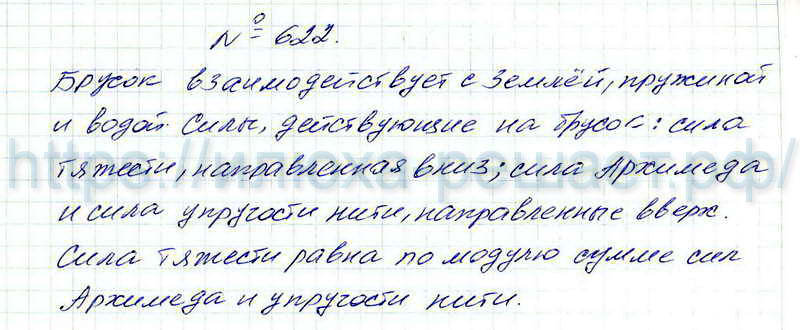 № 622.
Брусок взаимодействует с Землёй, пружиной
и водой. Силы, действующие на брусок: сила
тяжести, направленная вниз; сила Архимеда
и сила упругости нити, направленные вверх.
Сила тяжести равна по модулю сумме сил
Архимеда и упругости нити.